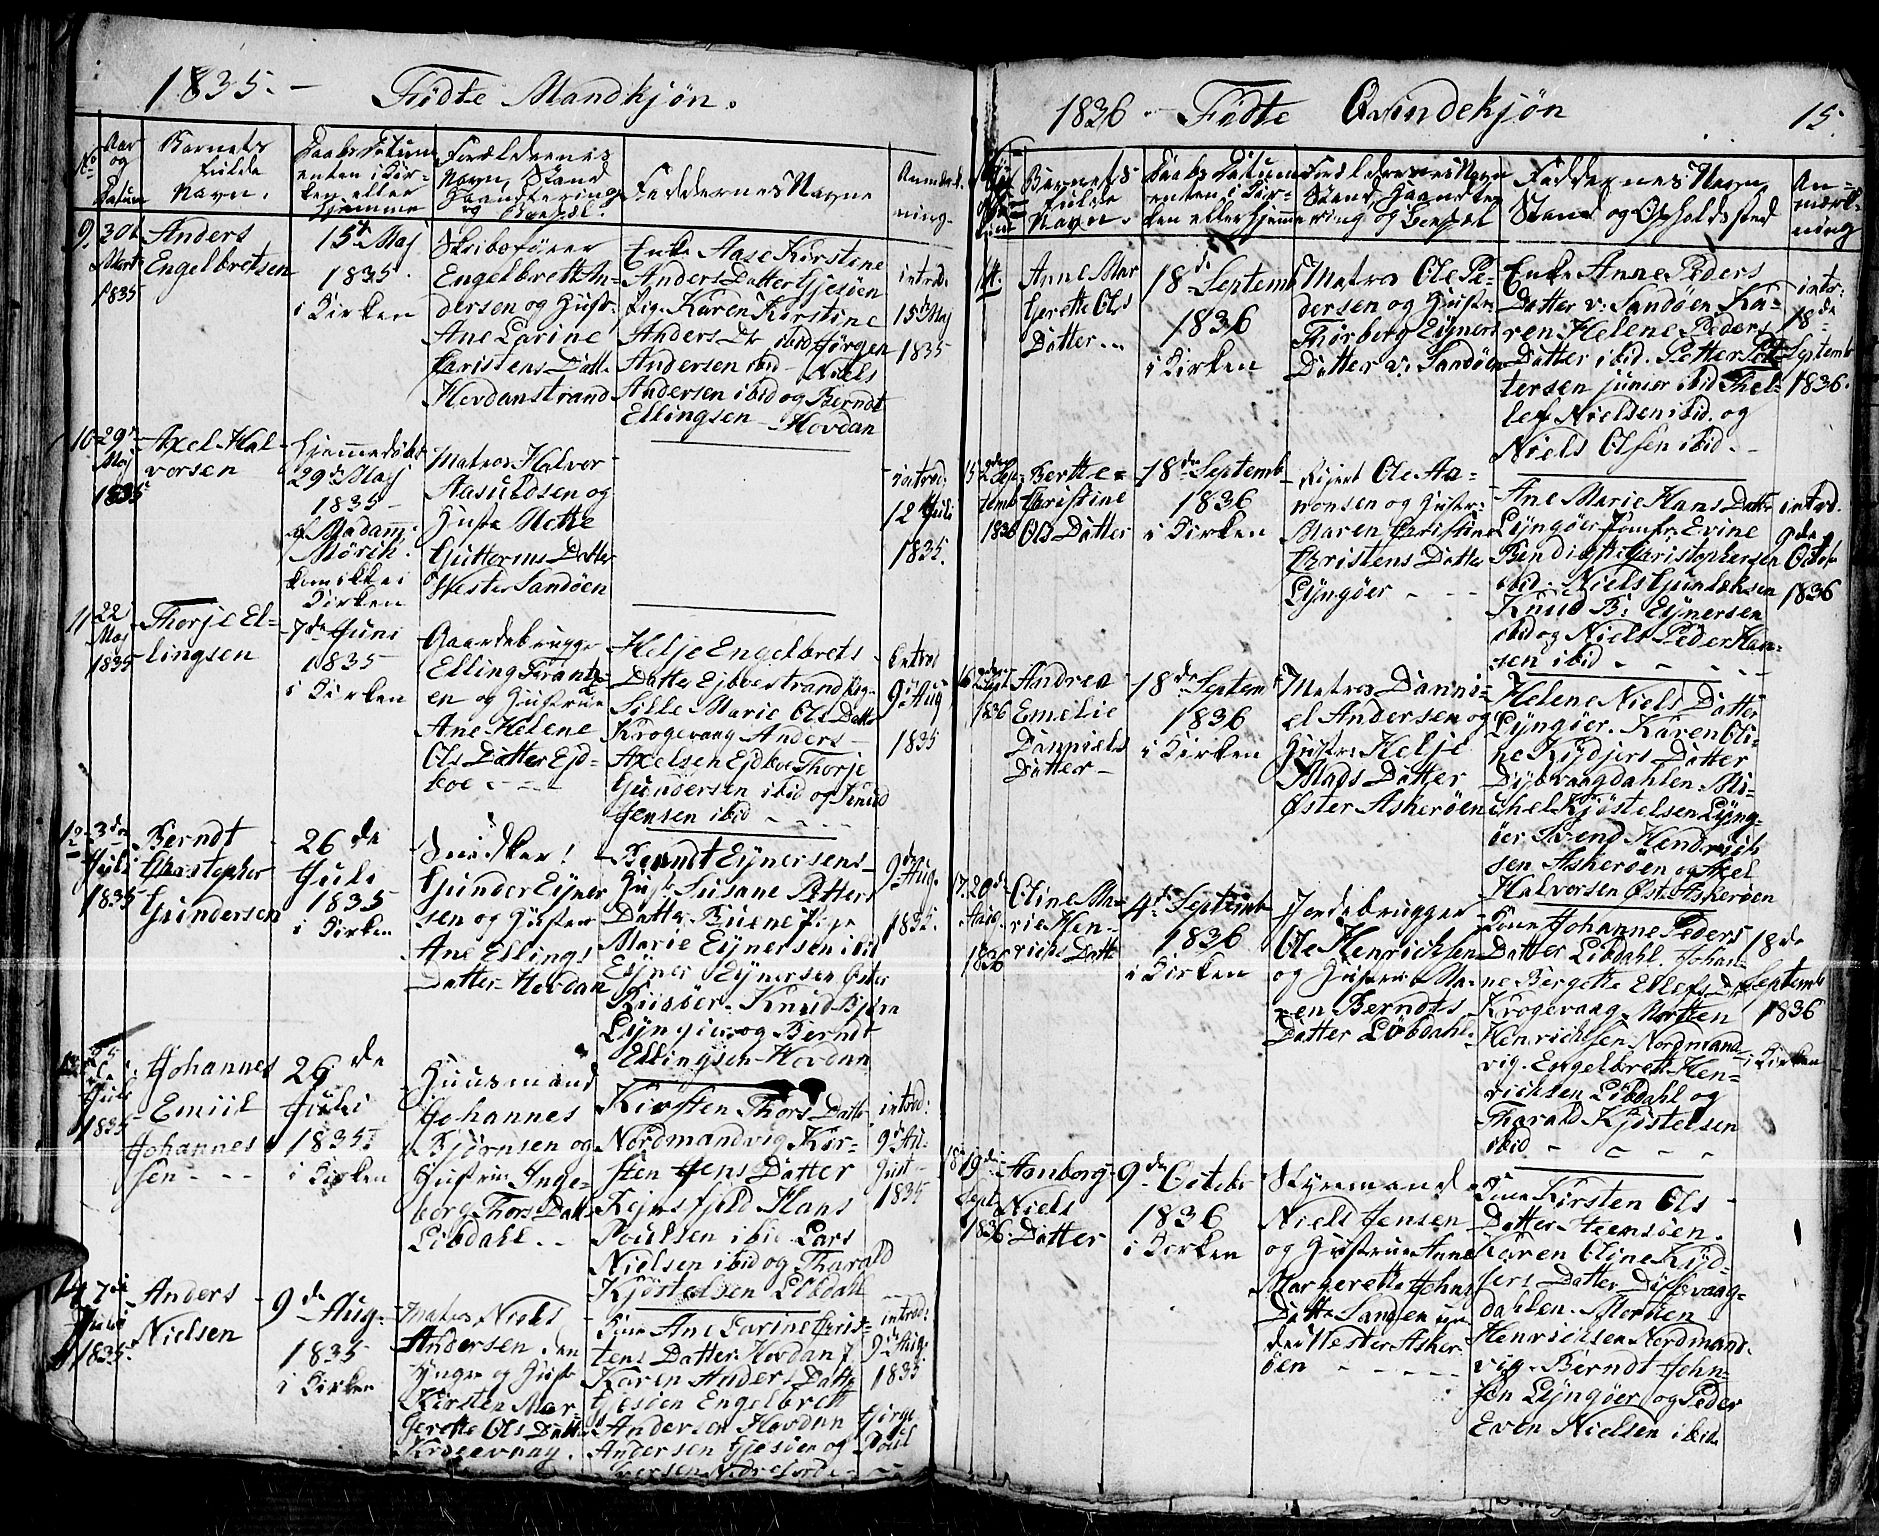 1835. - Fødte Mandkjøn.
No
Aar og Datum
Barnets fulde Navn.
Daabs Datum enten i Kirken eller Hjemme
Forældrenes Navn, Stand Haandtering og Bopæl.
Faddernes Navne
Anmærkning.
9.
Marts
1835
Anders
Engelbretsen
15d Maj
1835.
i Kirken
Engelbrett An-
dersen og Hustr.
Ane Larine
Christens Datt.
Hovdanstrand
Enke Aase Kirstine
Anders Datter Gjesøen
Pige Karen Kirstine
Anders Dtr ibid Jørgen
Andersen ibid - Niels
Andersen ibid og Berndt
Ellingsen - Hovdan
introd.
15d Maj
1835
10
29de
Maj
1835
Axel Hal-
vorsen
Hjemmedøbt
29d Maj
1835 -
af Madam
Mörch.
kom ikke i
Kirken
Matros Halvor
Aasuldsen og
Hustr Mette
Guttorms Datter
Vester Sandøen
introd:
12d Juli
1835.
11
22
Maj
1835
Thorje El-
lingsen
7de Juni
1835
i Kirken
Gaardebrugger
Elling Frantz-
en og Hustrue
Ane Helene
Ols Datter Ejd-
boe - - -
Helje Engelbrets
Datter Ejdboestrand Pig.
Sille Marie Ols Datter
Krogevaag Anders
Axelsen Ejdboe Thorje
Gundersen ibid og Knud
Jensen ibid - - - -
Introd
9d Aug
1835
12
3de
Juli
1835
Berndt
Christopher
Gundersen
26de
Juli
1835
i Kirken
Snedker
Gunder Ejner
sen og Hustru
Ane Ellings
Datter Hovdan
Berndt Ejnersens
Hust Susane Petters
Datter
Marie Ejnersen ibid
Ejner Ejnersen Øster
Riisöer. Knud Bjørn
Lyngøer og Berndt
Ellingsen Hovdan
9d Aug.
1835.
13
Juli
1835
Johannes
Emiil
Johannes
sen - - -
26de
Juli
1835
i Kirken
Huusmand
Johannes
Bjørnsen og
Hustrue Inge-
borg Thors Datt
Libdahl - -
Kirsten Thors Datter
Nordmandvig Kir-
sten Jens Datter
Fjeld Hans
Poulsen ibid Lars
Nielsen ibid og Tharald
Kjöstelsen Libdahl
introd:
9d Au-
gust
1835
14
7de
Juli
1835.
Anders
Nielsen
9de Aug.
1835
i Kirken
Matros Niels
Andersen den
yngre og Hustr
Kirsten Mar-
gerethe Ols Datter
Krogevaag.
Kone Ane Larine Chris-
tens Datter Hovdan
Karen Anders Datter
Gjesöen Engelbrett
Andersen Hovdan Jörge
Andersen Gjesöen og Poul
introd:
9d Aug.
1835
1836 - Fødte Qvindekjøn 15.
Barnets fulde Navn.
Daabs Datum enten i Kirken eller Hjemme
Forældrenes Navn Stand, Haandtering og Bopæl
Faddernes Navn Stand og Opholdssted
Anmærkning
14.
Anne Mar
gerette Ols
Datter...
18de Septemb
1836
i Kirken
Matros Ole Pe-
dersen og Hustr
Thorborg Ejners
Datter v: Sandøen
Enke Anne Peders
Datter v. Sandøen Ka-
ren Helene Peders
Datter ibid. Petter Pet-
tersen junior ibid Thel-
lef Nielsen ibid. og
Niels Olsen ibid. -
intr:
18de
Septemb
1836.
15
Septemb
1836
Berthe
Christine
Ols Datter
18de Septemb
1836
i Kirken
Ole Aa-
nonsen og Hustr.
Maren Christine
Christens Datter
Lyngøer - - -
Ane Marie Hans Datter
Lyngøer Jomfr. Evine
Bendigte Christophersen
ibid. Niels Gundersen
Knud B: Ejnersen
ibid og Niels Peder Han-
sen ibid - - - -
introd.
9de
Octobr
1836
16
1836
Andrea
Emelie
Danniels
Datter -
18de Septemb
1836
i Kirken
Matros Danni-
el Andersen og
Hustr. Helje
Mads Datter
Øster Askerøen
Helene Niels Datter
Lyngøer. Karen Oli-
ne Kydjers Datter
Dybvaagdahlen Mi-
chel Kjöstelsen Lyng-
øer Svend Hendrich
sen Askerøen og Axel
Halvorsen Øst: Askerøen
17.
29de
1836
Oline Ma-
rie Hen-
richs Datter
4de Septemb
1836
i Kirken
Jordebrugger
Ole Henrichsen
og Hustrue Ma-
ren Berndts
Datter Libdahl.
Kone Johanne Peders
Datter Libdahl. Johan-
ne Bergette Ellefs Dtr
Krogevaag. Morten
Henrichsen Nordmand-
vig. Engelbrett Hen-
richsen Libdahl og
Tharald Kjöstelsen
ibid - - - -
18de
Septemb
1836
i Kirken
18
19de
Septb
1836.
Aanborg
Niels
Datter
9de Octobr
1836
i Kirken
Styrmand
Niels Jensen
og Hustrue Anne
Margerette Johns
Datter
Vester Asker-
öen - - - -
Kone Kirsten Ols
Datter
Karen Oline Kyd-
jers Datter Dybvaag-
dahlen. Morten
Henrichsen Nordmand-
vig. Berndt John-
sen Lyngøer og Peder
Even Nielsen ibid.